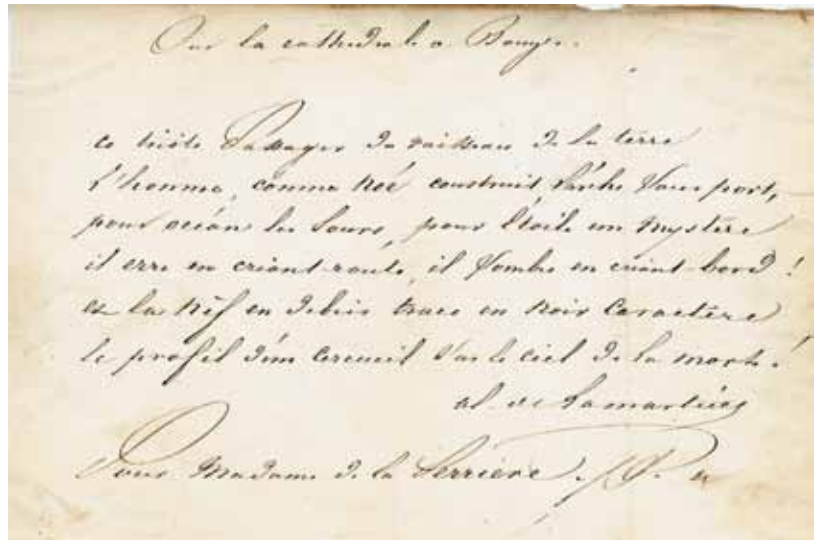 Sur la cathédrale a Bourges.
ce triste Passager du vaisseau de la terre
L'homme, comme Noé construit l'arche Sans port,
pour océan les Jours, pour étoile un mystère
il erre en criant route, il tombe en criant bord !
et la Nef en debris trace en Noir caractère
le profil d'un Cercueil Sur le ciel de la mort !
al. de Lamartine
Pour Madame de la Perrière